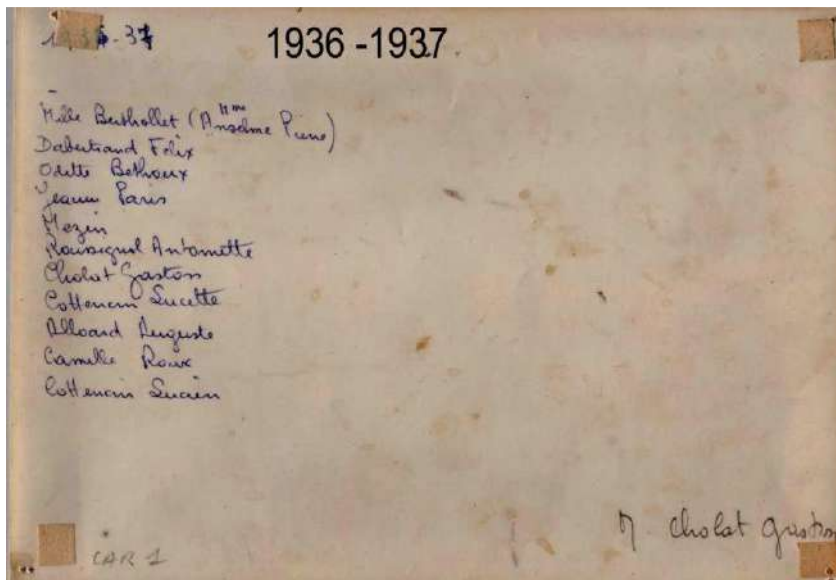 1936-37 1936 -1937
Mme
Mlle Berthollet (Anselme Pierre)
Dabertrand Félix
Odette Bethoux
Jeanne Paris
Mezin
Rossignol Antoinette
Cholat Gaston
Cottencin Lucette
Alloard Auguste
Camille Roux
Cottencin Lucien
M Cholat Gaston
CAR 1